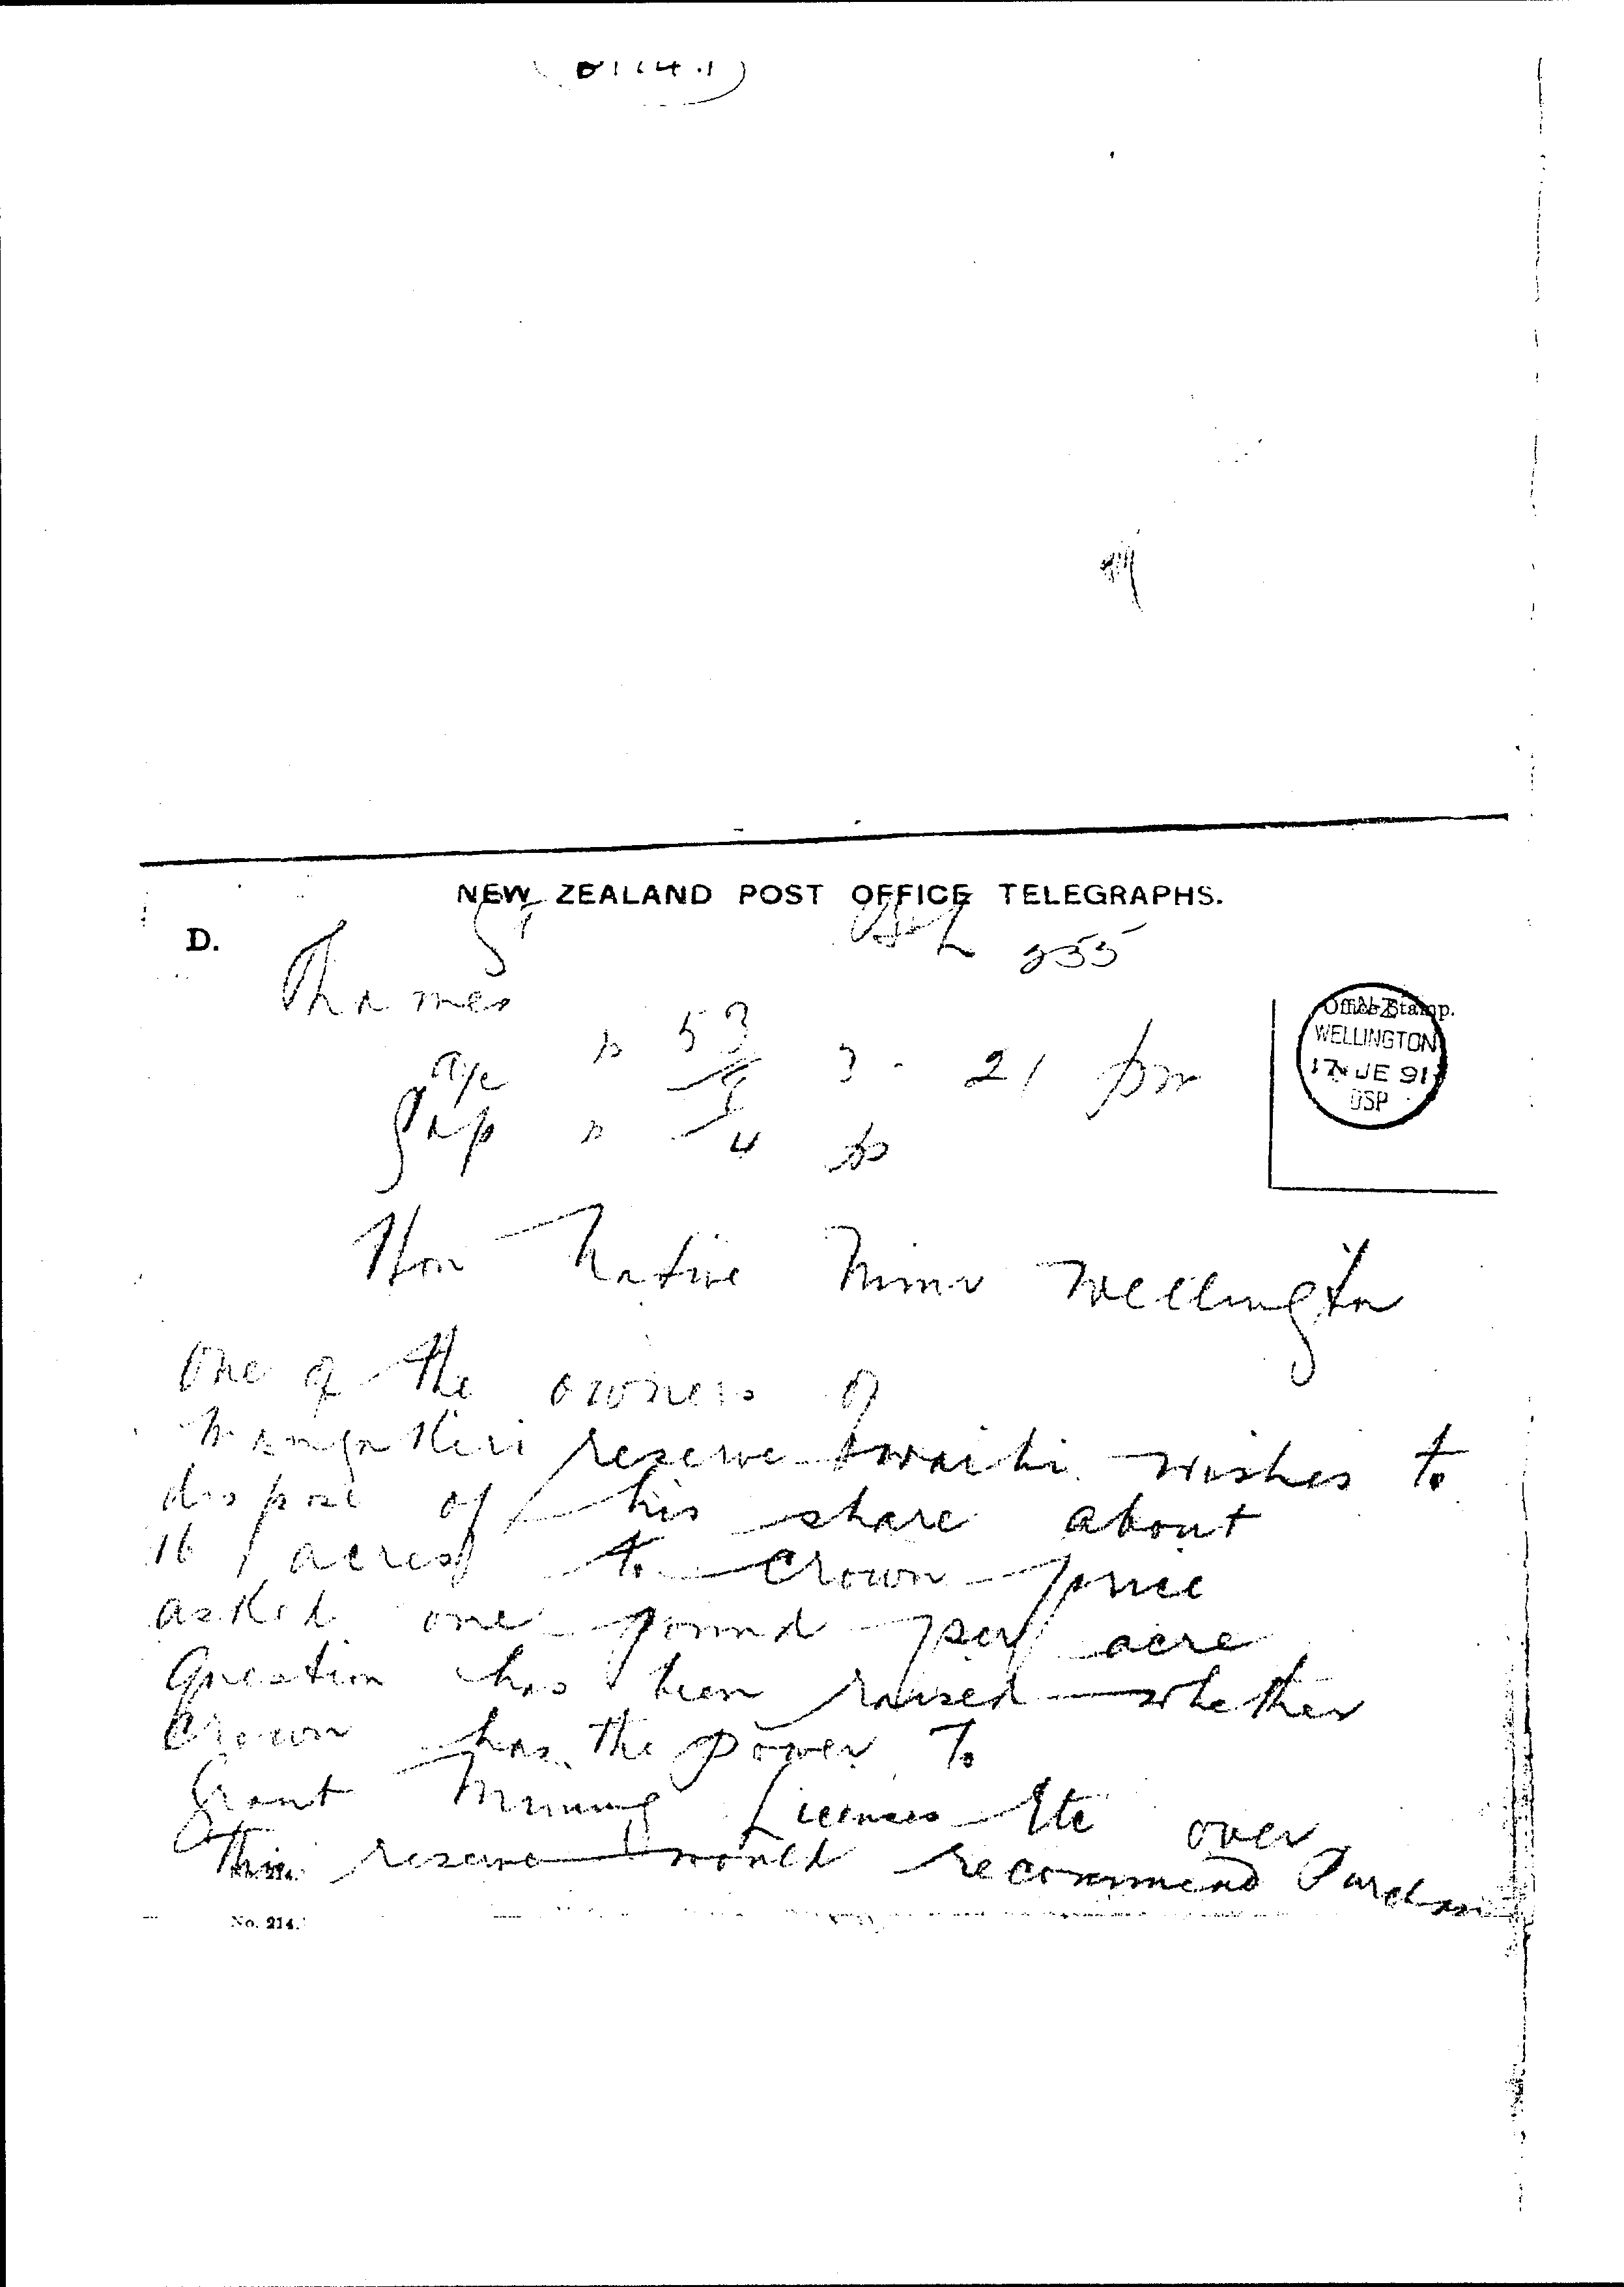 NEW ZEALAND POST OFFICE TELEGRAPHS.
D.
Thames
53
3 - 21 pm
4
Office Stamp.
WELLINGTON
17 JE 91
Hon Native Minr Wellington
One of the owners of
reserve Waihi wishes to
dispose of his share about
16 acres to Crown price
asked one pound per acre
Question has been raised whether
Crown has the power to
Grant Mining Licenses Etc over
this reserve would recommend Purchase
No. 214.